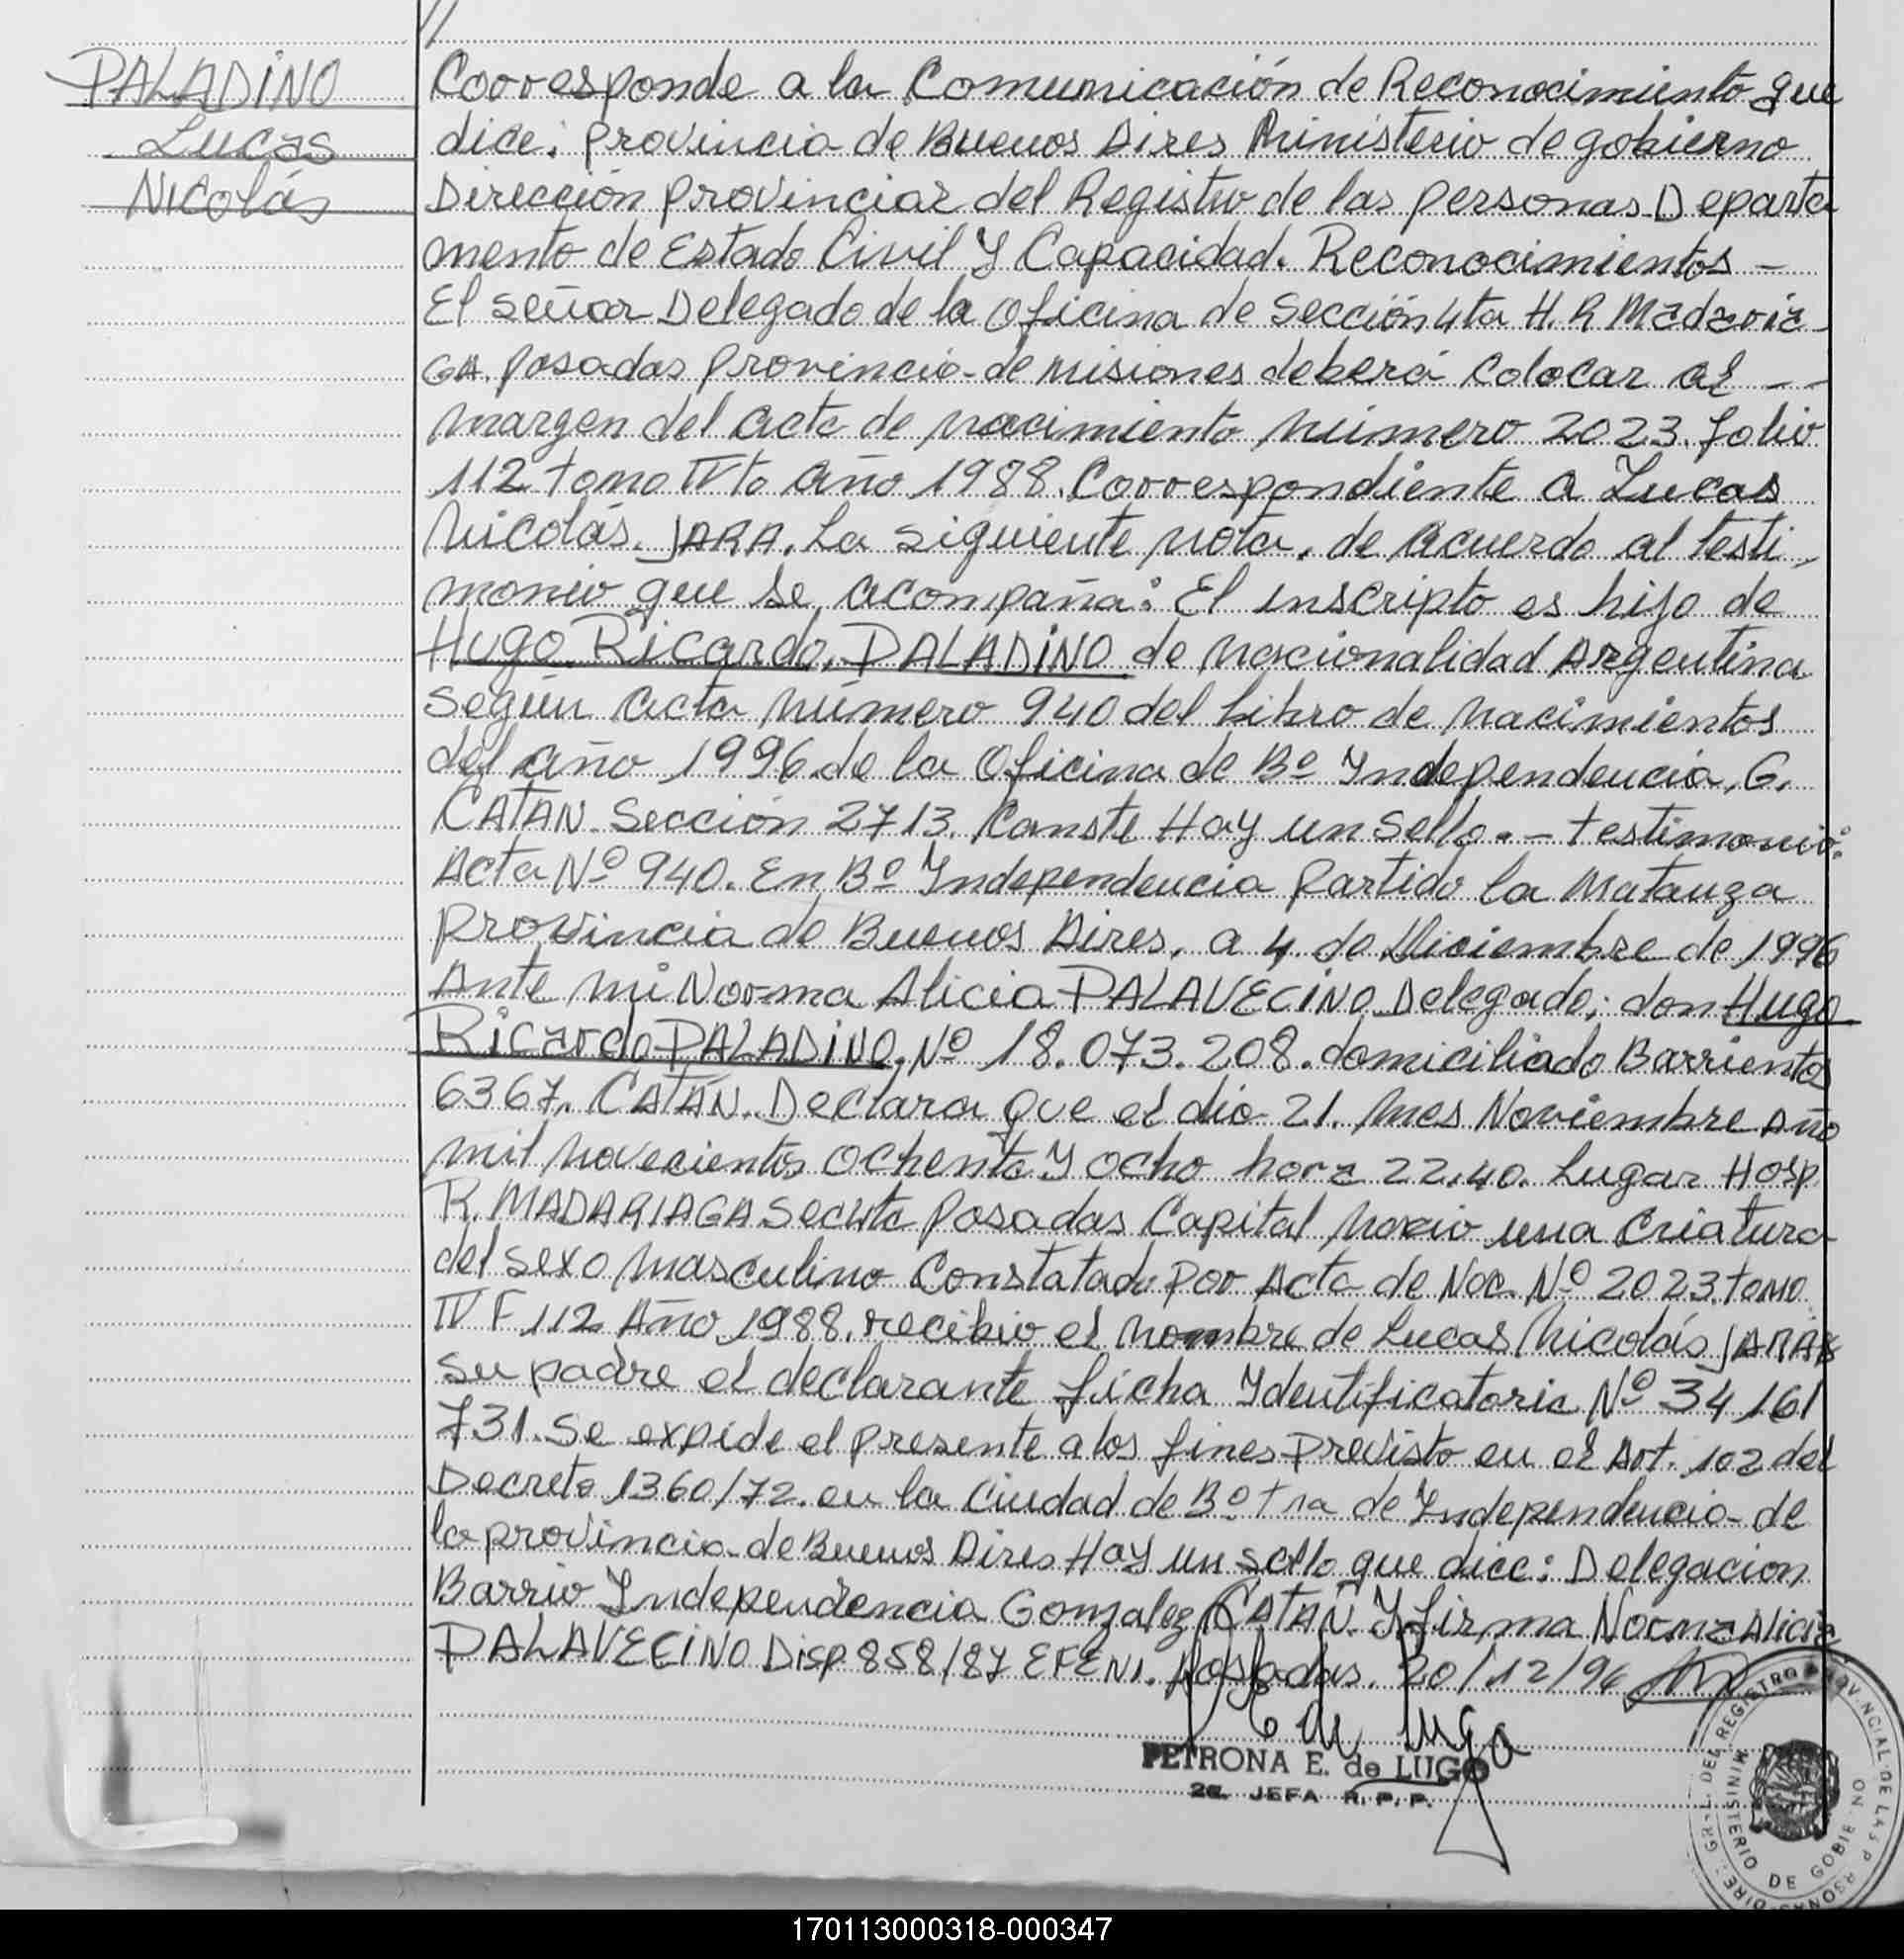 //
PALADINO
Lucas
Nicolás
Corresponde a la Comunicación de Reconocimiento que
dice: provincia de Buenos Aires Ministerio de gobierno
Dirección provincial del Registro de las personas Departa
mento de Estado Civil Y Capacidad. Reconocimientos -
El señor Delegado de la Oficina de Sección 4ta H. R Madaria-
GA. posadas provincia de misiones deberá colocar al --
margen del acta de nacimiento número 2023. folio
112 tomo IV to año 1988. Correspondiente a Lucas
Nicolás. JARA. La siguiente nota. de acuerdo al testi-
monio que se acompaña: El inscripto es hijo de
Hugo Ricardo, PALADINO de nacionalidad Argentina
según acta número 940 del libro de nacimientos
del año 1996 de la Oficina de Bº Independencia, G.
CATAN Sección 2713. Conste Hay un Sello. - testimonio:
Acta Nº 940. En Bº Independencia partido la Matanza
provincia de Buenos Aires, a 4 de Diciembre de 1996
Ante mi Norma Alicia PALAVECINO Delegado; don Hugo
Ricardo PALADINO. Nº 18.073.208. domiciliado Barrientos
6367. CATÁN. Declara que el dia 21. mes Noviembre Año
mil novecientos ochenta y ocho hora 22.40. Lugar Hosp
R. MADARIAGA Sec 4ta posadas Capital nacio una Criatura
del sexo masculino Constatado por Acta de Nac. Nº 2023 tomo
IV F 112 Año 1988. recibio el nombre de Lucas Nicolás JARA
su padre el declarante ficha Identificatoria Nº 34 161
731. Se expide el presente a los fines previsto en el Art. 102 del
Decreto 1360/72. en la Ciudad de Bº de Independencia de
la provincia de Buenos Aires Hay un sello que dice: Delegacion
Barrio Independencia Gonzalez CATAN. Y firma Norma Alicia
PALAVECINO Disp. 858/87 Posadas. 20/12/96
E de Lugo
PETRONA E. de LUGO
2a. JEFA R. P. P.
DIRE. GRAL. DEL REGISTRO PROVINCIAL DE LAS PERSONAS
MINISTERIO DE GOBIERNO
170113000318-000347